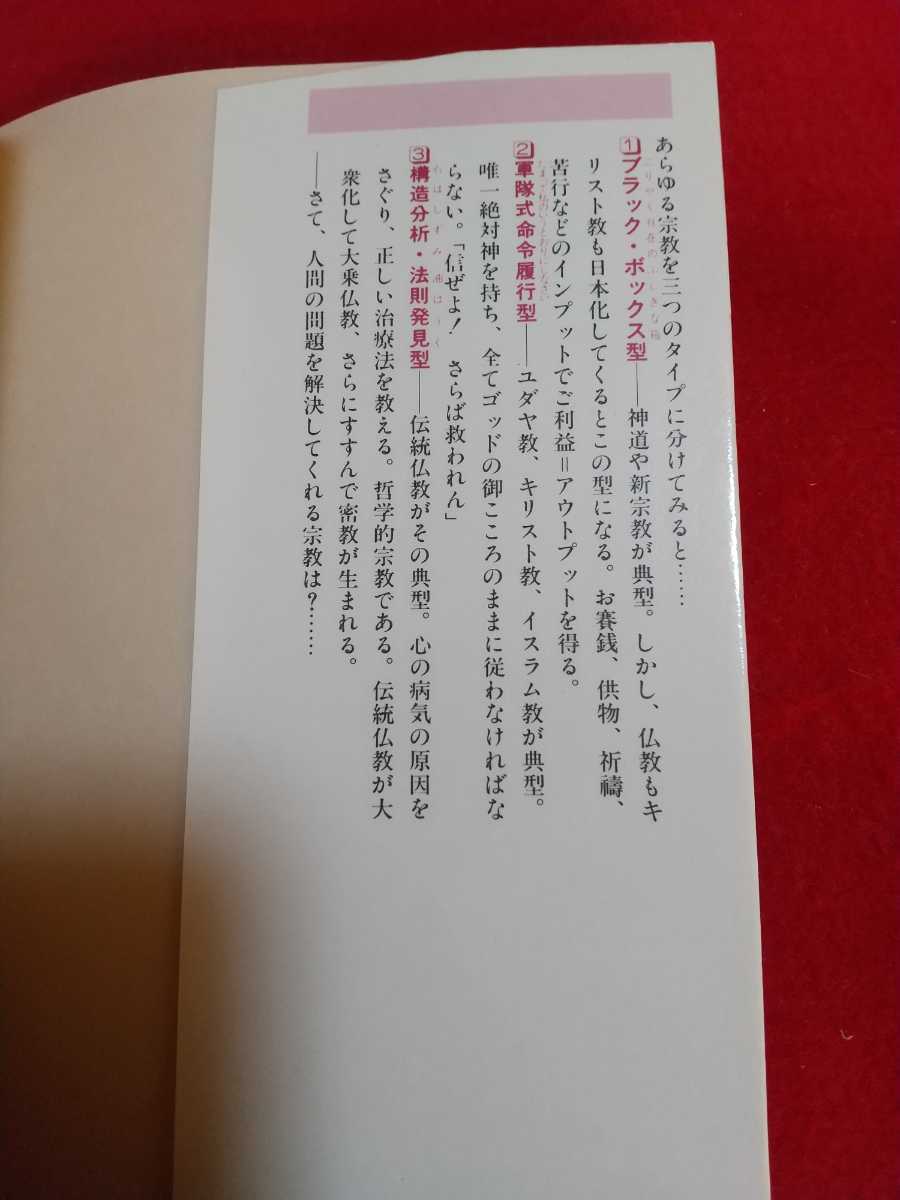 あらゆる宗教を三つのタイプに分けてみると……
1ブラック・ボックス型――神道や新宗教が典型。しかし、仏教もキ
リスト教も日本化してくるとこの型になる。お賽銭、供物、祈禱、
苦行などのインプットでご利益＝アウトプットを得る。
2軍隊式命令履行型――ユダヤ教、キリスト教、イスラム教が典型。
唯一絶対神を持ち、全てゴッドの御こころのままに従わなければな
らない。「信ぜよ！　さらば救われん」
3構造分析・法則発見型――伝統仏教がその典型。心の病気の原因を
さぐり、正しい治療法を教える。哲学的宗教である。伝統仏教が大
衆化して大乗仏教、さらにすすんで密教が生まれる。
――さて、人間の問題を解決してくれる宗教は？……